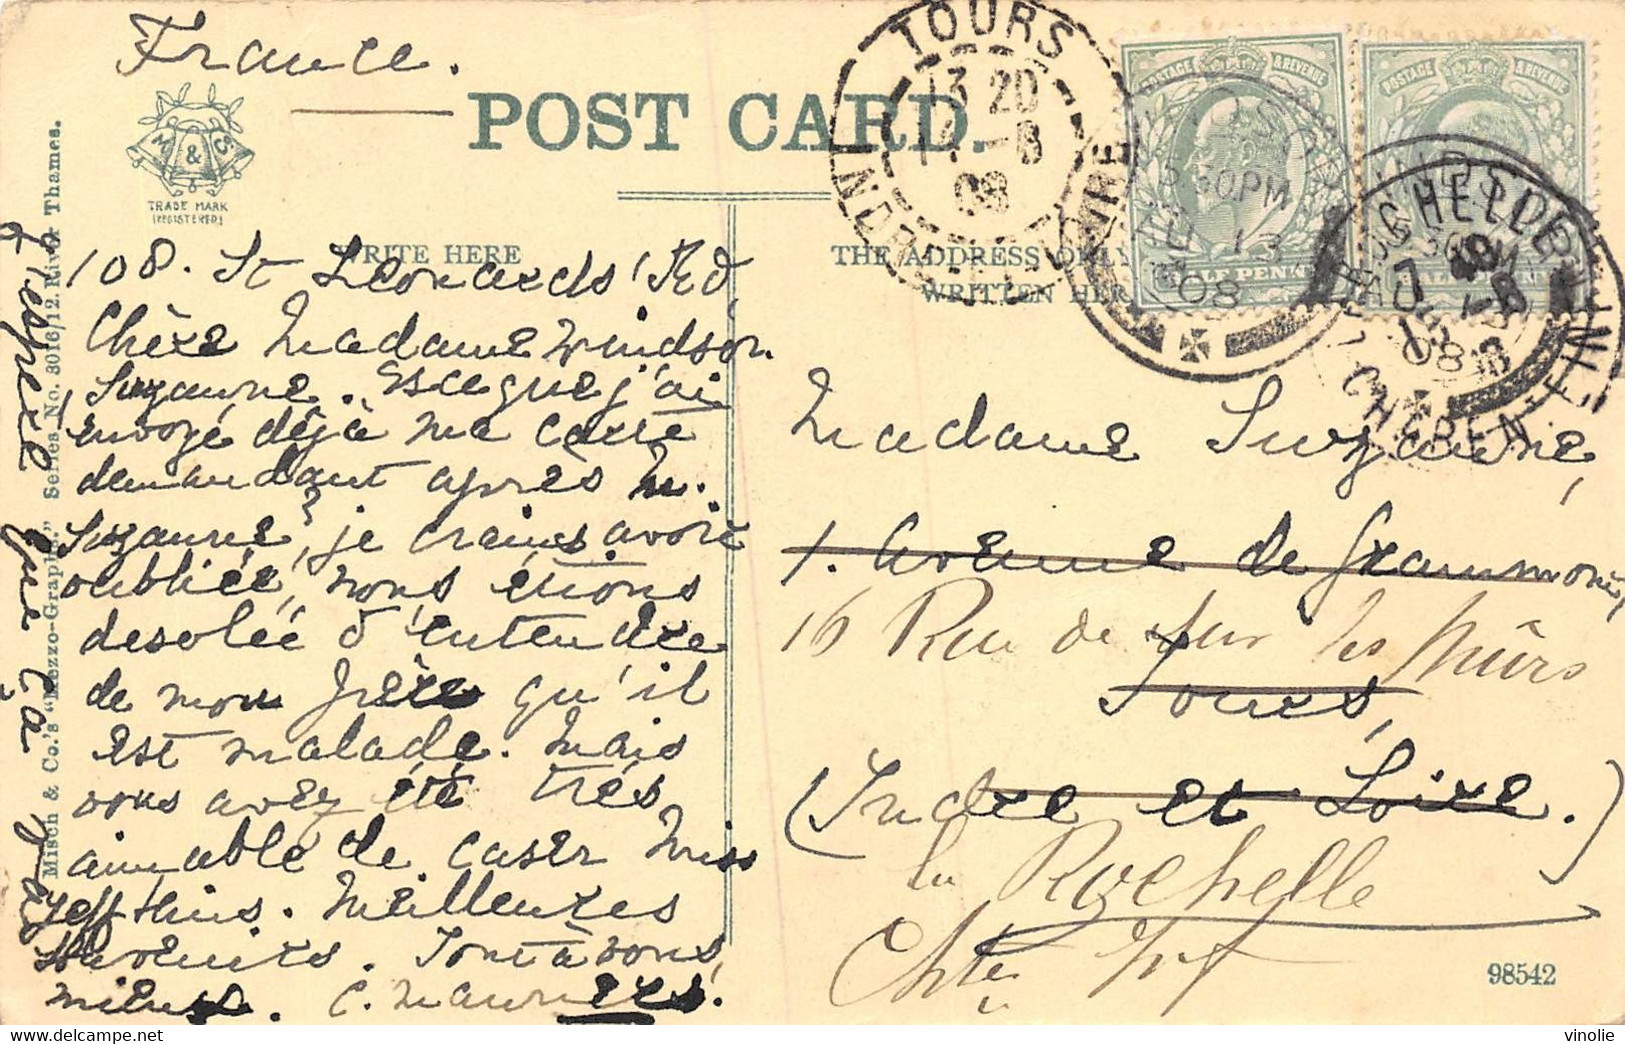 France.
POST CARD.
M & S
TRADE MARK
(REGISTERED)
WRITE HERE
THE ADDRESS ONLY
WRITTEN HERE
TOURS
13 20
14 - 8
08
INDRE
5.30PM
AU 13
08
POSTAGE & REVENUE
HALF PENNY
POSTAGE & REVENUE
HALF PENNY
LA ROCHELLE
08
108. St Leonards Rd.
Windsor.
Chère Madame
Suzanne. Esceque j'ai
envoyé déjà ma carte
demandant après M.
Suzanne? je crains avoir
oubliée, nous étions
desolée d'entendre
de mon frère qu'il
est malade. Mais
vous avez été très
aimable de caser Miss
Jeffkins. Meilleures
souvenirs. Tout à vous
C.
j'espère que ça
Madame Suzanne,
1. Avenue de Grammont,
16 Rue de sur les Mûrs
Tours,
(Indre et Loire.)
La Rochelle
Chte Infre
98542
Misch & Co.'s "Mezzo-Graph" Series No. 3016/12. River Thames.
vinolie